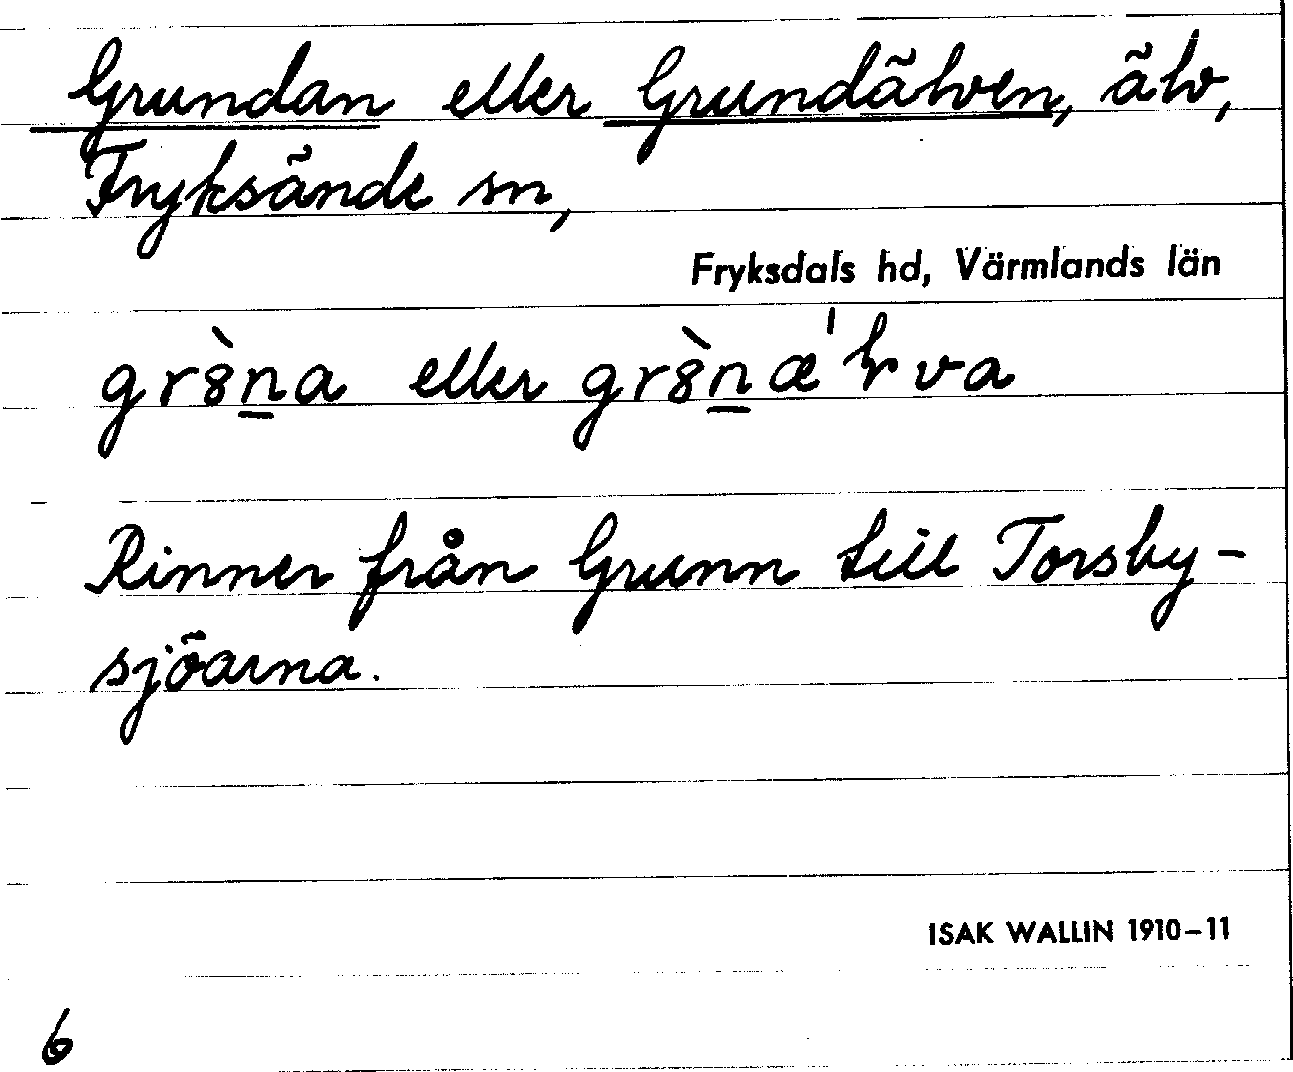 Grundan eller Grundälven, älv,
Fryksände sn,
Fryksdals hd, Värmlands län
gr8̀n̲a eller gr8̀n̲æˈɽva
Rinner från Grunn till Torsby-
sjöarna.
ISAK WALLIN 1910–11
6